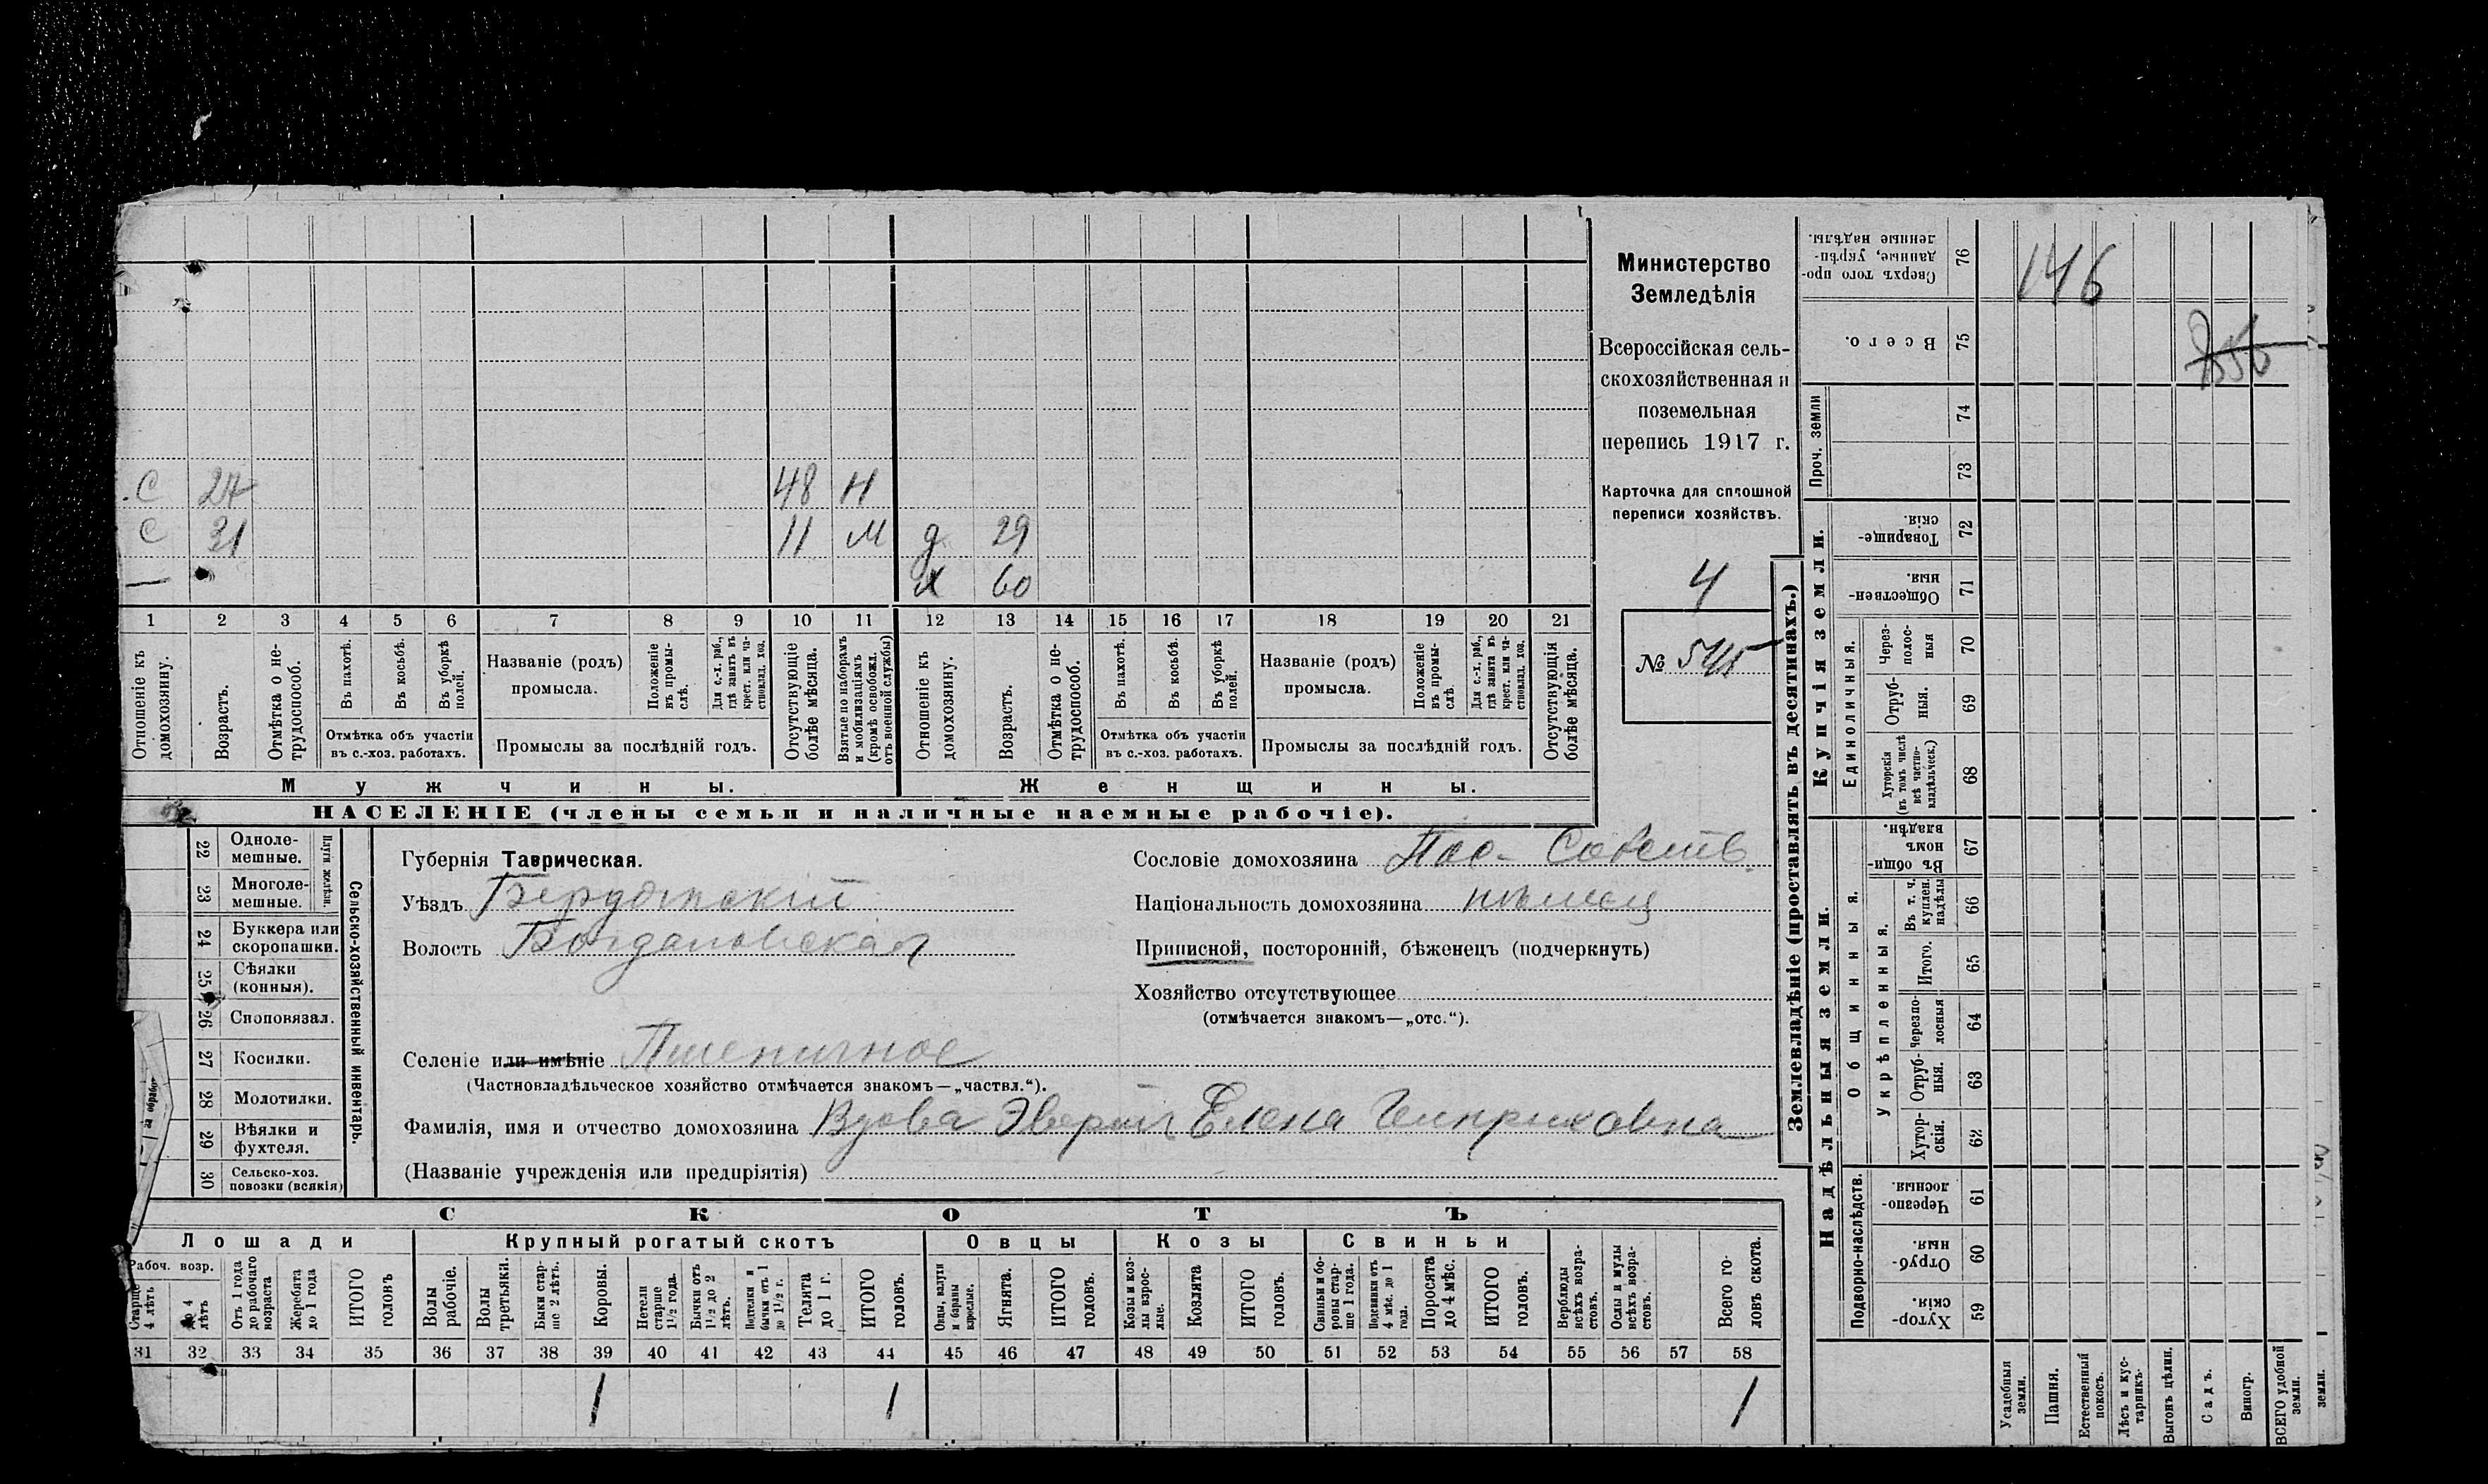 146
556
Министерство
Земледѣлія
Всероссійская сель-
скохозяйственная и
поземельная
перепись 1917 г.
Карточка для сплошной
переписи хозяйствъ.
4
№ 545
С 27 48 Н
С 31 11 М д 29
— х 60
1 2 3 4 5 6 7 8 9 10 11 12 13 14 15 16 17 18 19 20 21
Отношеніе къ домохозяину.
Возрастъ.
Отмѣтка о не-трудоспособ.
Въ пахотѣ.
Въ косьбѣ.
Въ уборкѣ полей.
Отмѣтка объ участіи
въ с.-хоз. работахъ.
Названіе (родъ)
промысла.
Положеніе въ промы-слѣ.
Для с.-х. раб., гдѣ занятъ въ крест. или ча-стновлад. хоз.
Промыслы за послѣдній годъ.
Отсутствующіе болѣе мѣсяца.
Взятые по наборамъ и мобилизаціямъ (кромѣ освобожд. отъ военной службы)
Отношеніе къ домохозяину.
Возрастъ.
Отмѣтка о не-трудоспособ.
Въ пахотѣ.
Въ косьбѣ.
Въ уборкѣ полей.
Отмѣтка объ участіи
въ с.-хоз. работахъ.
Названіе (родъ)
промысла.
Положеніе въ промы-слѣ.
Для с.-х. раб., гдѣ занята въ крест. или ча-стновлад. хоз.
Промыслы за послѣдній годъ.
Отсутствующія болѣе мѣсяца.
Мужчины. Женщины.
НАСЕЛЕНІЕ (члены семьи и наличные наемные рабочіе).
22 Одноле-мешные.
23 Многоле-мешные.
Плуги желѣзн.
24 Буккера или скоропашки.
25 Сѣялки (конныя).
26 Сноповязал.
27 Косилки.
28 Молотилки.
29 Вѣялки и фухтеля.
30 Сельско-хоз. повозки (всякія)
Сельско-хозяйственный инвентарь.
за обрабо-
Губернія Таврическая.
Уѣздъ Бердянскій
Волость Богдановская
Сословіе домохозяина Пос. Собств.
Національность домохозяина нѣмец
Приписной, посторонній, бѣженецъ (подчеркнуть)
Хозяйство отсутствующее
(отмѣчается знакомъ—„отс.“).
Селеніе или имѣніе Пшеничное
(Частновладѣльческое хозяйство отмѣчается знакомъ—„частвл.“).
Фамилія, имя и отчество домохозяина Вдова Эверт Елена Генриховна
(Названіе учрежденія или предпріятія)
СКОТЪ
Лошади Крупный рогатый скотъ Овцы Козы Свиньи
Рабоч. возр.
Старше 4 лѣтъ
до 4 лѣтъ
Отъ 1 года до рабочаго возраста
Жеребята до 1 года
ИТОГО головъ
Волы рабочіе.
Волы третьяки.
Быки стар-ше 2 лѣтъ.
Коровы.
Нетели старше 1½ года.
Бычки отъ 1½ до 2 лѣтъ.
Подтелки и бычки отъ 1 до 1½ г.
Телята до 1 г.
ИТОГО головъ.
Овцы, валухи и бараны взрослые.
Ягнята.
ИТОГО головъ.
Козы и коз-лы взрос-лые.
Козлята
ИТОГО головъ.
Свиньи и бо-ровы стар-ше 1 года.
Подсвинки отъ 4 мѣс. до 1 года.
Поросята до 4 мѣс.
ИТОГО головъ.
Верблюды всѣхъ возра-стовъ.
Ослы и мулы всѣхъ возра-стовъ.
Всего го-ловъ скота.
31 32 33 34 35 36 37 38 39 40 41 42 43 44 45 46 47 48 49 50 51 52 53 54 55 56 57 58
1 1 1
Землевладѣніе (проставлять въ десятинахъ.)
Сверхъ того про-данные, укрѣп-ленные надѣлы. 76
Всего. 75
Проч. земли 74
73
Купчія земли.
Товарище-скія. 72
Обществен-ныя. 71
Единоличныя.
Через-полос-ныя 70
Отруб-ныя. 69
Хуторскія (въ томъ числѣ всѣ частно-владѣльческ.) 68
Надѣльныя земли.
Общинныя.
Въ общи-номъ владѣн. 67
Укрѣпленныя.
Въ т. ч. куплен. надѣлы 66
Итого. 65
Черезпо-лосныя 64
Отруб-ныя. 63
Хутор-скія. 62
Подворно-наслѣдств.
Черезпо-лосныя. 61
Отруб-ныя. 60
Хутор-скія. 59
Усадебныя земли.
Пашня.
Естественный покосъ.
Лѣсъ и кус-тарникъ.
Выгонъ цѣлин.
Садъ.
Виногр.
ВСЕГО удобной земли.
земли.